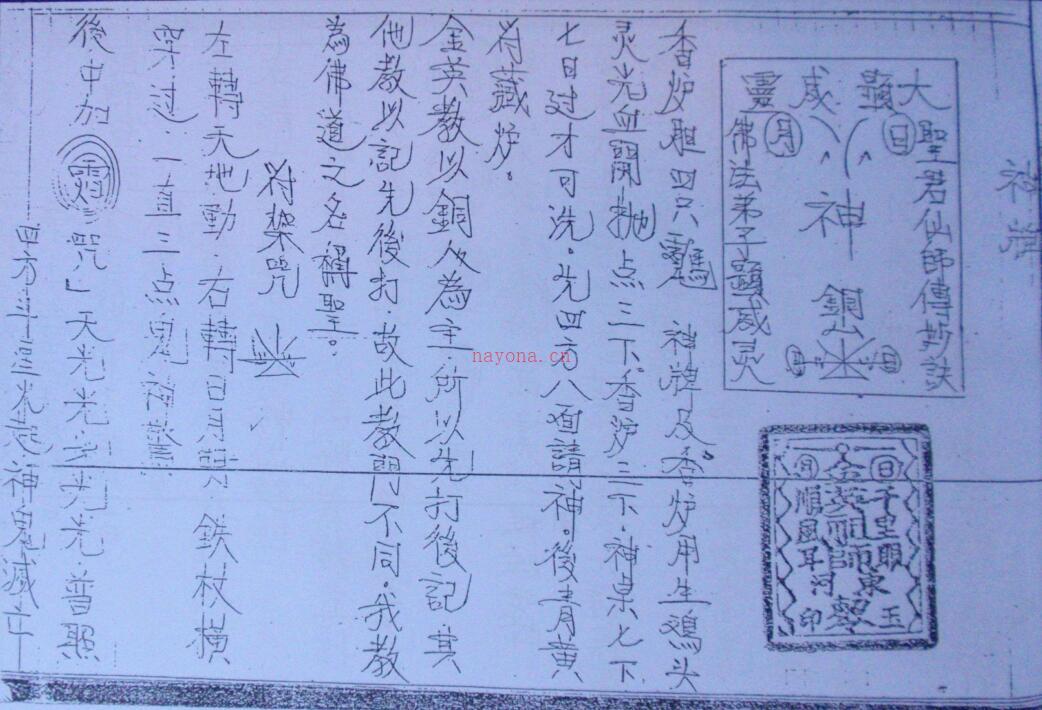 神牌
大顯威靈
聖君仙師傳勅訣
日
月
神
銅
佛法弟子顯威灵
月 日
日 千里眼
金英祖師 東
月 順風耳
玉 印
香炉胆四只 神牌及香炉用生鸡头
灵光血開 点三下香炉三下.神桌七下
七日过才可洗。先四方八面請神。後青黄
符藏炉。
金英教以銅人為主.所以先打後記.其
他教以記先後打.故此教門不同.我教
為佛道之名稱聖。
符架咒
左轉天地動.右轉日月.鉄杖横
穿过.一直三点鬼
後中加 咒」天光光 光光.普照
神鬼滅亡
nayona.cn